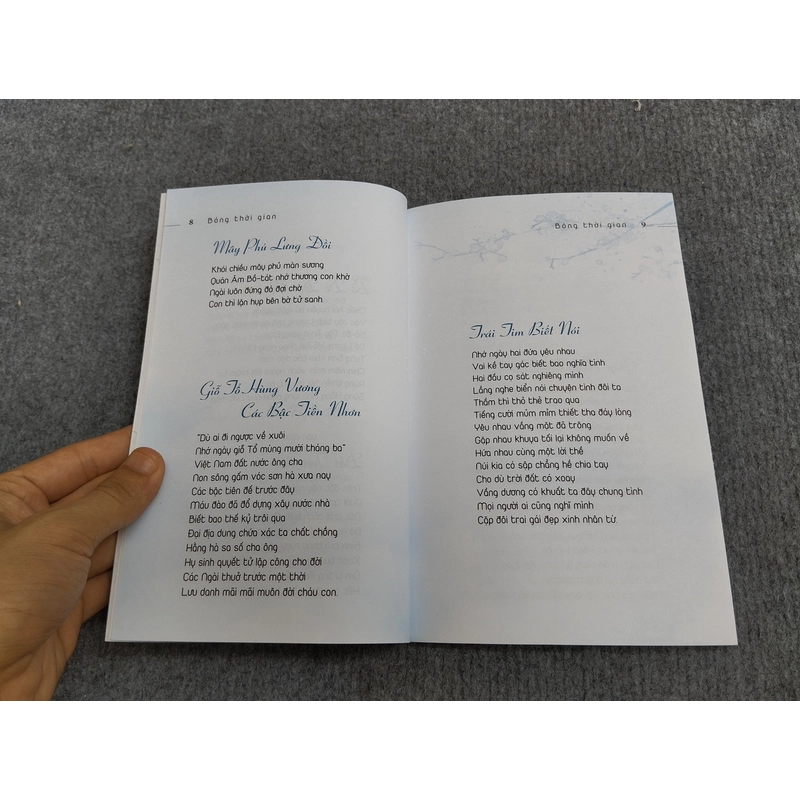 8 Bóng thời gian
Mây Phủ Lưng Đồi
Khói chiều mây phủ màn sương
Quán Âm Bồ-tát nhớ thương con khờ
Ngài luôn đứng đó đợi chờ
Con thì lặn hụp bên bờ tử sanh.
Giỗ Tổ Hùng Vương
Các Bậc Tiền Nhơn
"Dù ai đi ngược về xuôi
Nhớ ngày giỗ Tổ mùng mười tháng ba"
Việt Nam đất nước ông cha
Non sông gấm vóc sơn hà xưa nay
Các bậc tiên đế trước đây
Máu đào đã đổ dựng xây nước nhà
Biết bao thế kỷ trôi qua
Đại địa dung chứa xác ta chất chồng
Hằng hà sa số cha ông
Hy sinh quyết tử lập công cho đời
Các Ngài thuở trước một thời
Lưu danh mãi mãi muôn đời cháu con.
Bóng thời gian 9
Trái Tim Biết Nói
Nhớ ngày hai đứa yêu nhau
Vai kề tay gác biết bao nghĩa tình
Hai đầu cọ sát nghiêng mình
Lắng nghe biển nói chuyện tình đôi ta
Thầm thì thỏ thẻ trao qua
Tiếng cười mủm mỉm thiết tha đáy lòng
Yêu nhau vầng mặt đã trông
Gặp nhau khuya tối lại không muốn về
Hứa nhau cùng một lời thề
Núi kia có sập chẳng hề chia tay
Cho dù trời đất có xoay
Vầng dương có khuất ta đây chung tình
Mọi người ai cũng nghĩ mình
Cặp đôi trai gái đẹp xinh nhân từ.